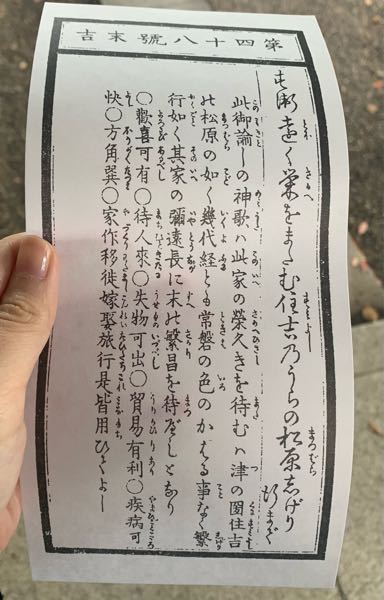 第四十八號末吉
末遠く栄をまたむ住吉乃うらの松原志げり行まで
此御諭しの神歌ハ此家の榮久きを待むハ津の國住吉
の松原の如く幾代経とも常磐の色のかはる事なく繁
行如く其家の彌遠長に末の繁昌を待べしとなり
○歡喜可有○待人來○失物可出○貿易有利○疾病可
快○方角巽○家作移徙嫁娶旅行是皆用ひてよし